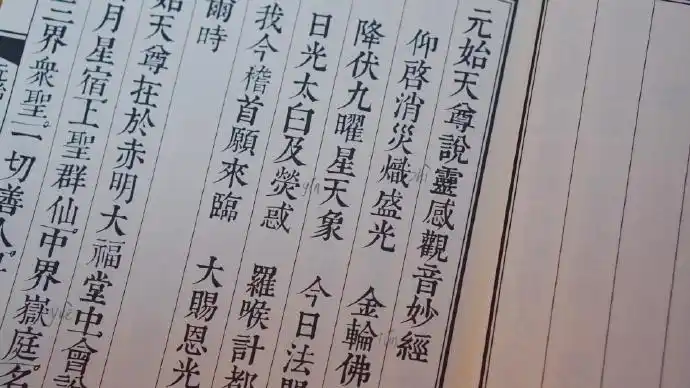 元始天尊說靈感觀音妙經
仰啓消災熾盛光　金輪佛
降伏九曜星天象　今日法
日光太白及熒惑　羅睺計都
我今稽首願來臨　大賜恩光
爾時
始天尊在於赤明大福堂中會說
月星宿上聖群仙中界嶽庭名
三界眾聖一切善人